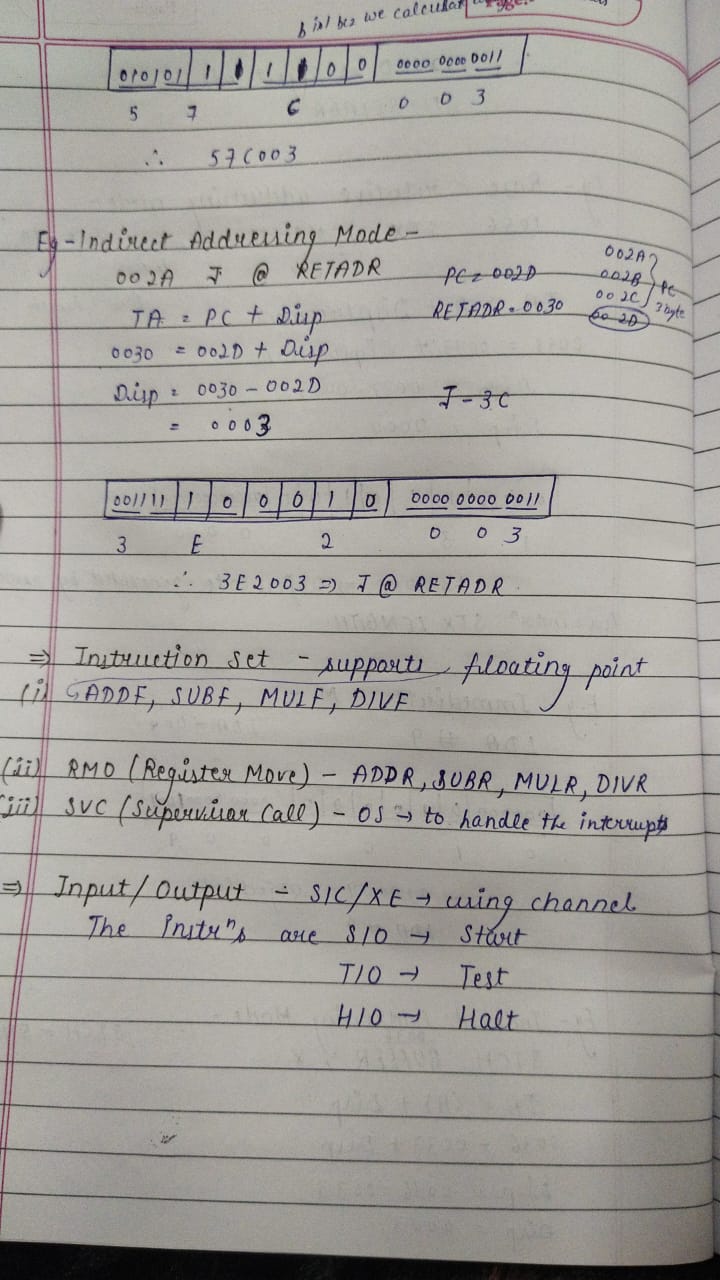 bcz we calculat
010101 1 1 1 1 0 0 0000 0000 0011
5 7 C 0 0 3
∴ 57C003
Eg - Indirect Addressing Mode -
002A J @ RETADR PC = 002D
002A
002B
002C
002D
PC
3 byte
TA = PC + Disp RETADR = 0030
0030 = 002D + Disp
Disp = 0030 - 002D J - 3C
= 0003
001111 1 0 0 0 1 0 0000 0000 0011
3 E 2 0 0 3
∴ 3E2003 ⇒ J @ RETADR.
⇒ Instruction set - supports floating point
(i) ADDF, SUBF, MULF, DIVF
(ii) RMO (Register Move) - ADDR, SUBR, MULR, DIVR
(iii) SVC (Supervisor Call) - OS → to handle the interrupts
⇒ Input/Output - SIC/XE → using channel
The Instrⁿs are SIO → Start
TIO → Test
HIO → Halt